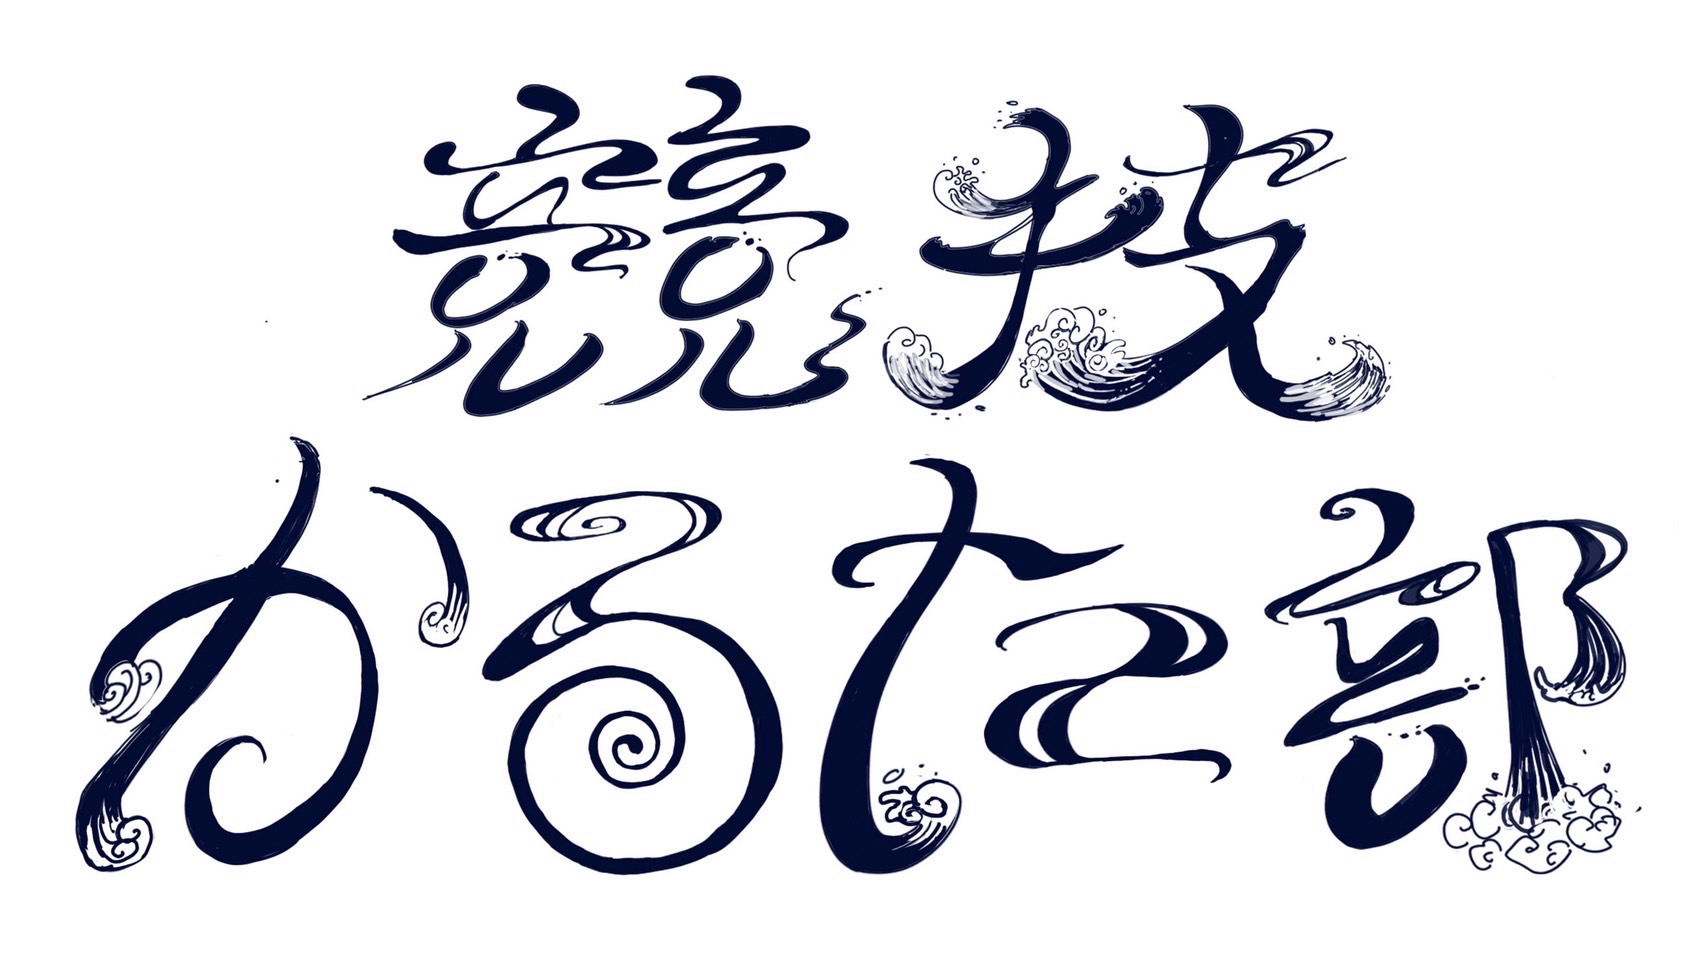 競技
かるた部